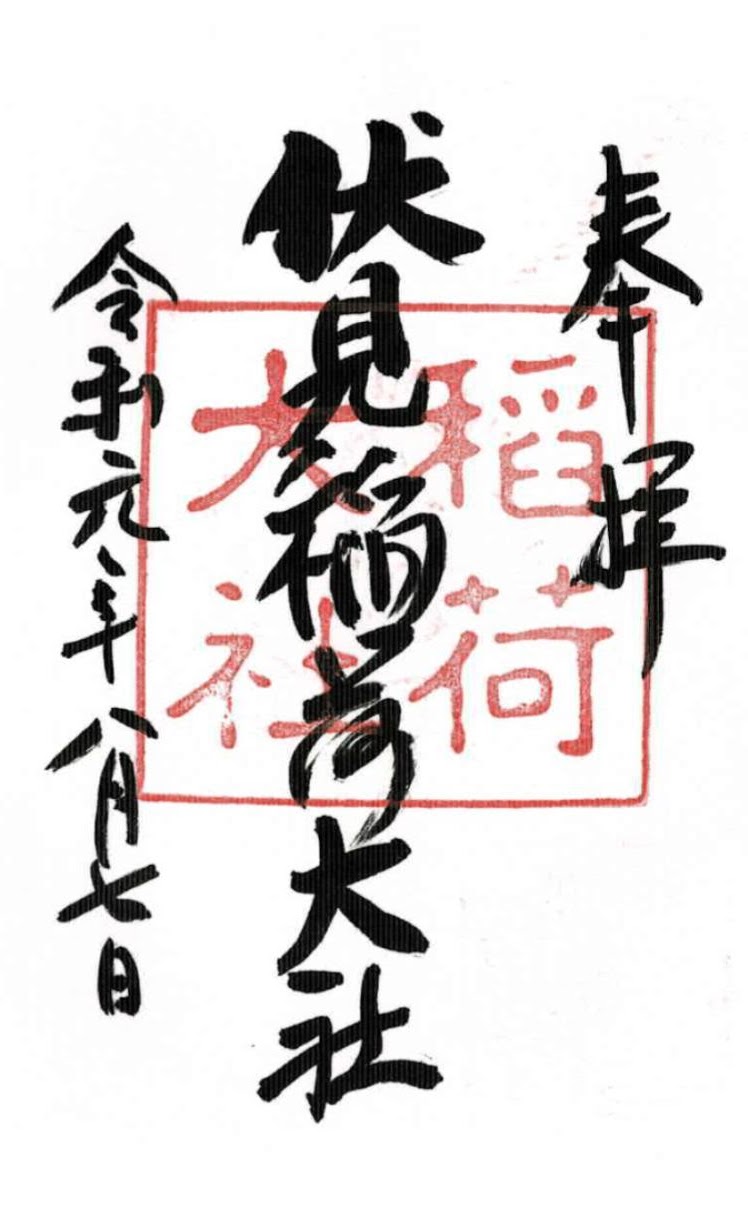 奉拝
伏見稲荷大社
稲荷
大社
令和元年八月七日